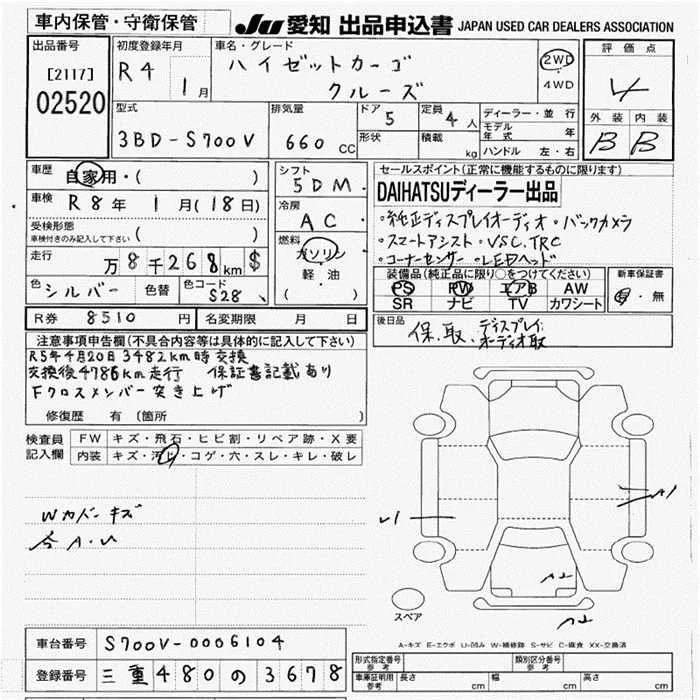 車内保管・守衛保管
JU 愛知 出品申込書 JAPAN USED CAR DEALERS ASSOCIATION
出品番号
[2117]
02520
初度登録年月
R4 1月
車名・グレード
ハイゼットカーゴ
クルーズ
2WD
4WD
評価点
4
外装 内装
B B
型式
3BD-S700V
排気量
660 CC
ドア
5
形状
定員
4人
積載
kg
ディーラー・並行
モデル年式 年
ハンドル 左・右
車歴
自家用・( )
車検
R8年 1月(18日)
受検形態
車検付きのみ記入して下さい ( )
走行
万8千268km $
色 シルバー 色替
色コード
S28
シフト
5DM
冷房
AC
燃料
ガソリン
軽・油
( )
セールスポイント(正常に機能するものに限ります)
DAIHATSUディーラー出品
・純正ディスプレイオーディオ・バックカメラ
・スマートアシスト・VSC.TRC
・コーナーセンサー・LEDヘッド
装備品(純正品に限り○をつけてください)
PS PW エアB AW
SR ナビ TV カワシート
新車保証書
有・無
R券 8510円
名変期限 月 日
後日品
保.取.ディスプレイ
オーディオ取
注意事項申告欄(不具合内容等は具体的に記入して下さい)
R5年4月20日3482km時交換
交換後4786km走行 保証書記載あり
Fクロスメンバー突き上げ
修復歴 有 (箇所 )
検査員
記入欄
FW キズ・飛石・ヒビ割・リペア跡・X要
内装 キズ・汚れ・コゲ・穴・スレ・キレ・破レ
Wカバーキズ
A・U
U1
A1
A2
A2
スペア
A-キズ E-エクボ U-凹み W-補修跡 S-サビ C-腐食 XX-交換済
車台番号 S700V-0006104
登録番号 三重480の3678
形式指定番号
参考
類別区分番号
参考
車庫証明用
参考
長さ cm 幅 cm 高さ cm